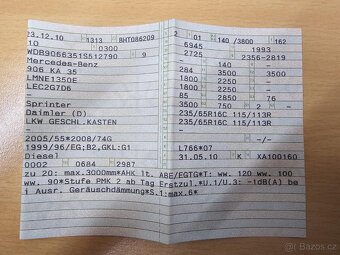 23.12.10 1313 BHT086209
10 0300
WDB9066351S512790 9
Mercedes-Benz
906 KA 35
LMNE1350E
LEC2G7D6
-
Sprinter
Daimler (D)
LKW GESCHL.KASTEN
-
2005/55*2008/74G
1999/96/EG;B2,GKL:G1
Diesel
0002 0684 2987
2 01 140 /3800 162
5945 1993
2725 2356-2819
- 140 - -
284 3500 3500
1800 2250 -
1800 2250 -
85 2850 76
3500 750 2 -
235/65R16C 115/113R
235/65R16C 115/113R
-
-/-
L766*07
31.05.10 K XA100160
zu 20: max.3000mm*AHK lt. ABE/EGTG*T: ww. 120 ww. 100
ww. 90*Stufe PMK 2 ab Tag Erstzul.*U.1/U.3: -1dB(A) be
i Ausr. Geräuschdämmung*S.1:max.6*
bazos.cz